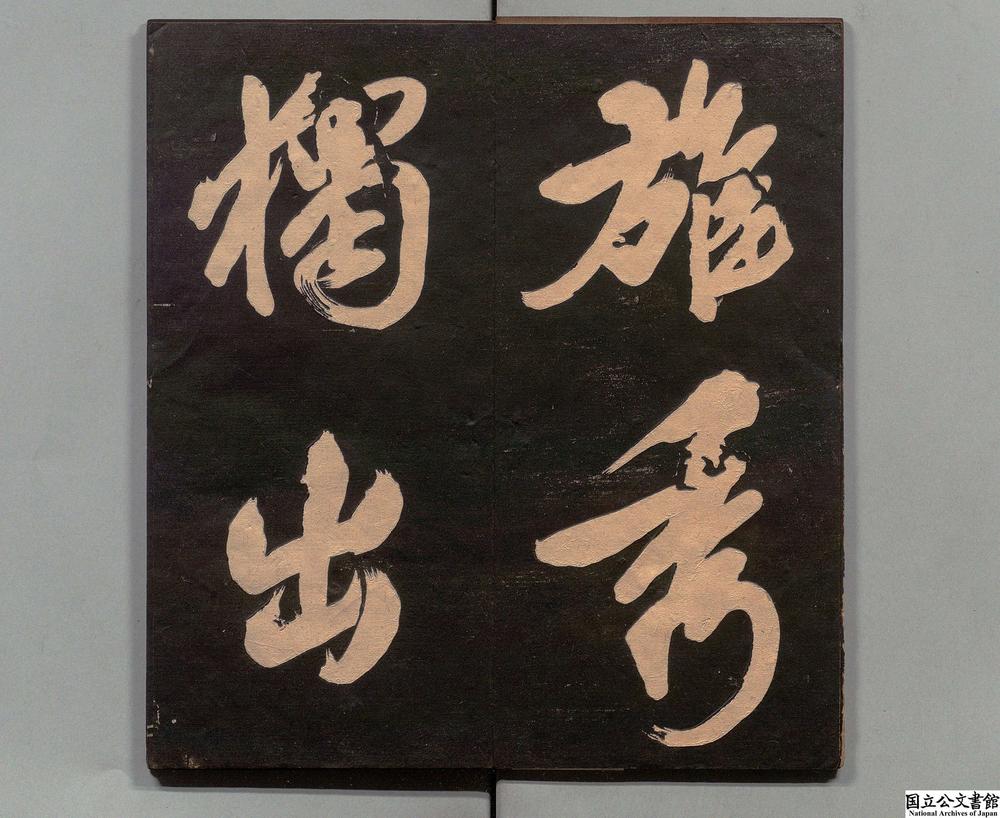 雄秀
獨出
国立公文書館
National Archives of Japan